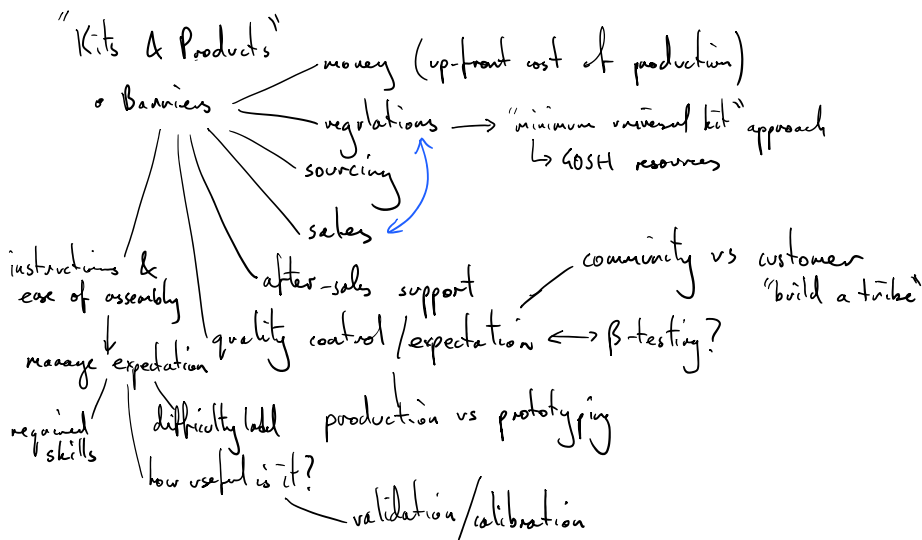 "Kits & Products"
• Barriers
money (up-front cost of production)
regulations → "minimum universal kit" approach
↳ GOSH resources
sourcing
sales
after-sales support
community vs customer
"build a tribe"
quality control / expectation ↔ β-testing?
production vs prototyping
instructions &
ease of assembly
manage expectation
required
skills
difficulty label
how useful is it?
validation/calibration